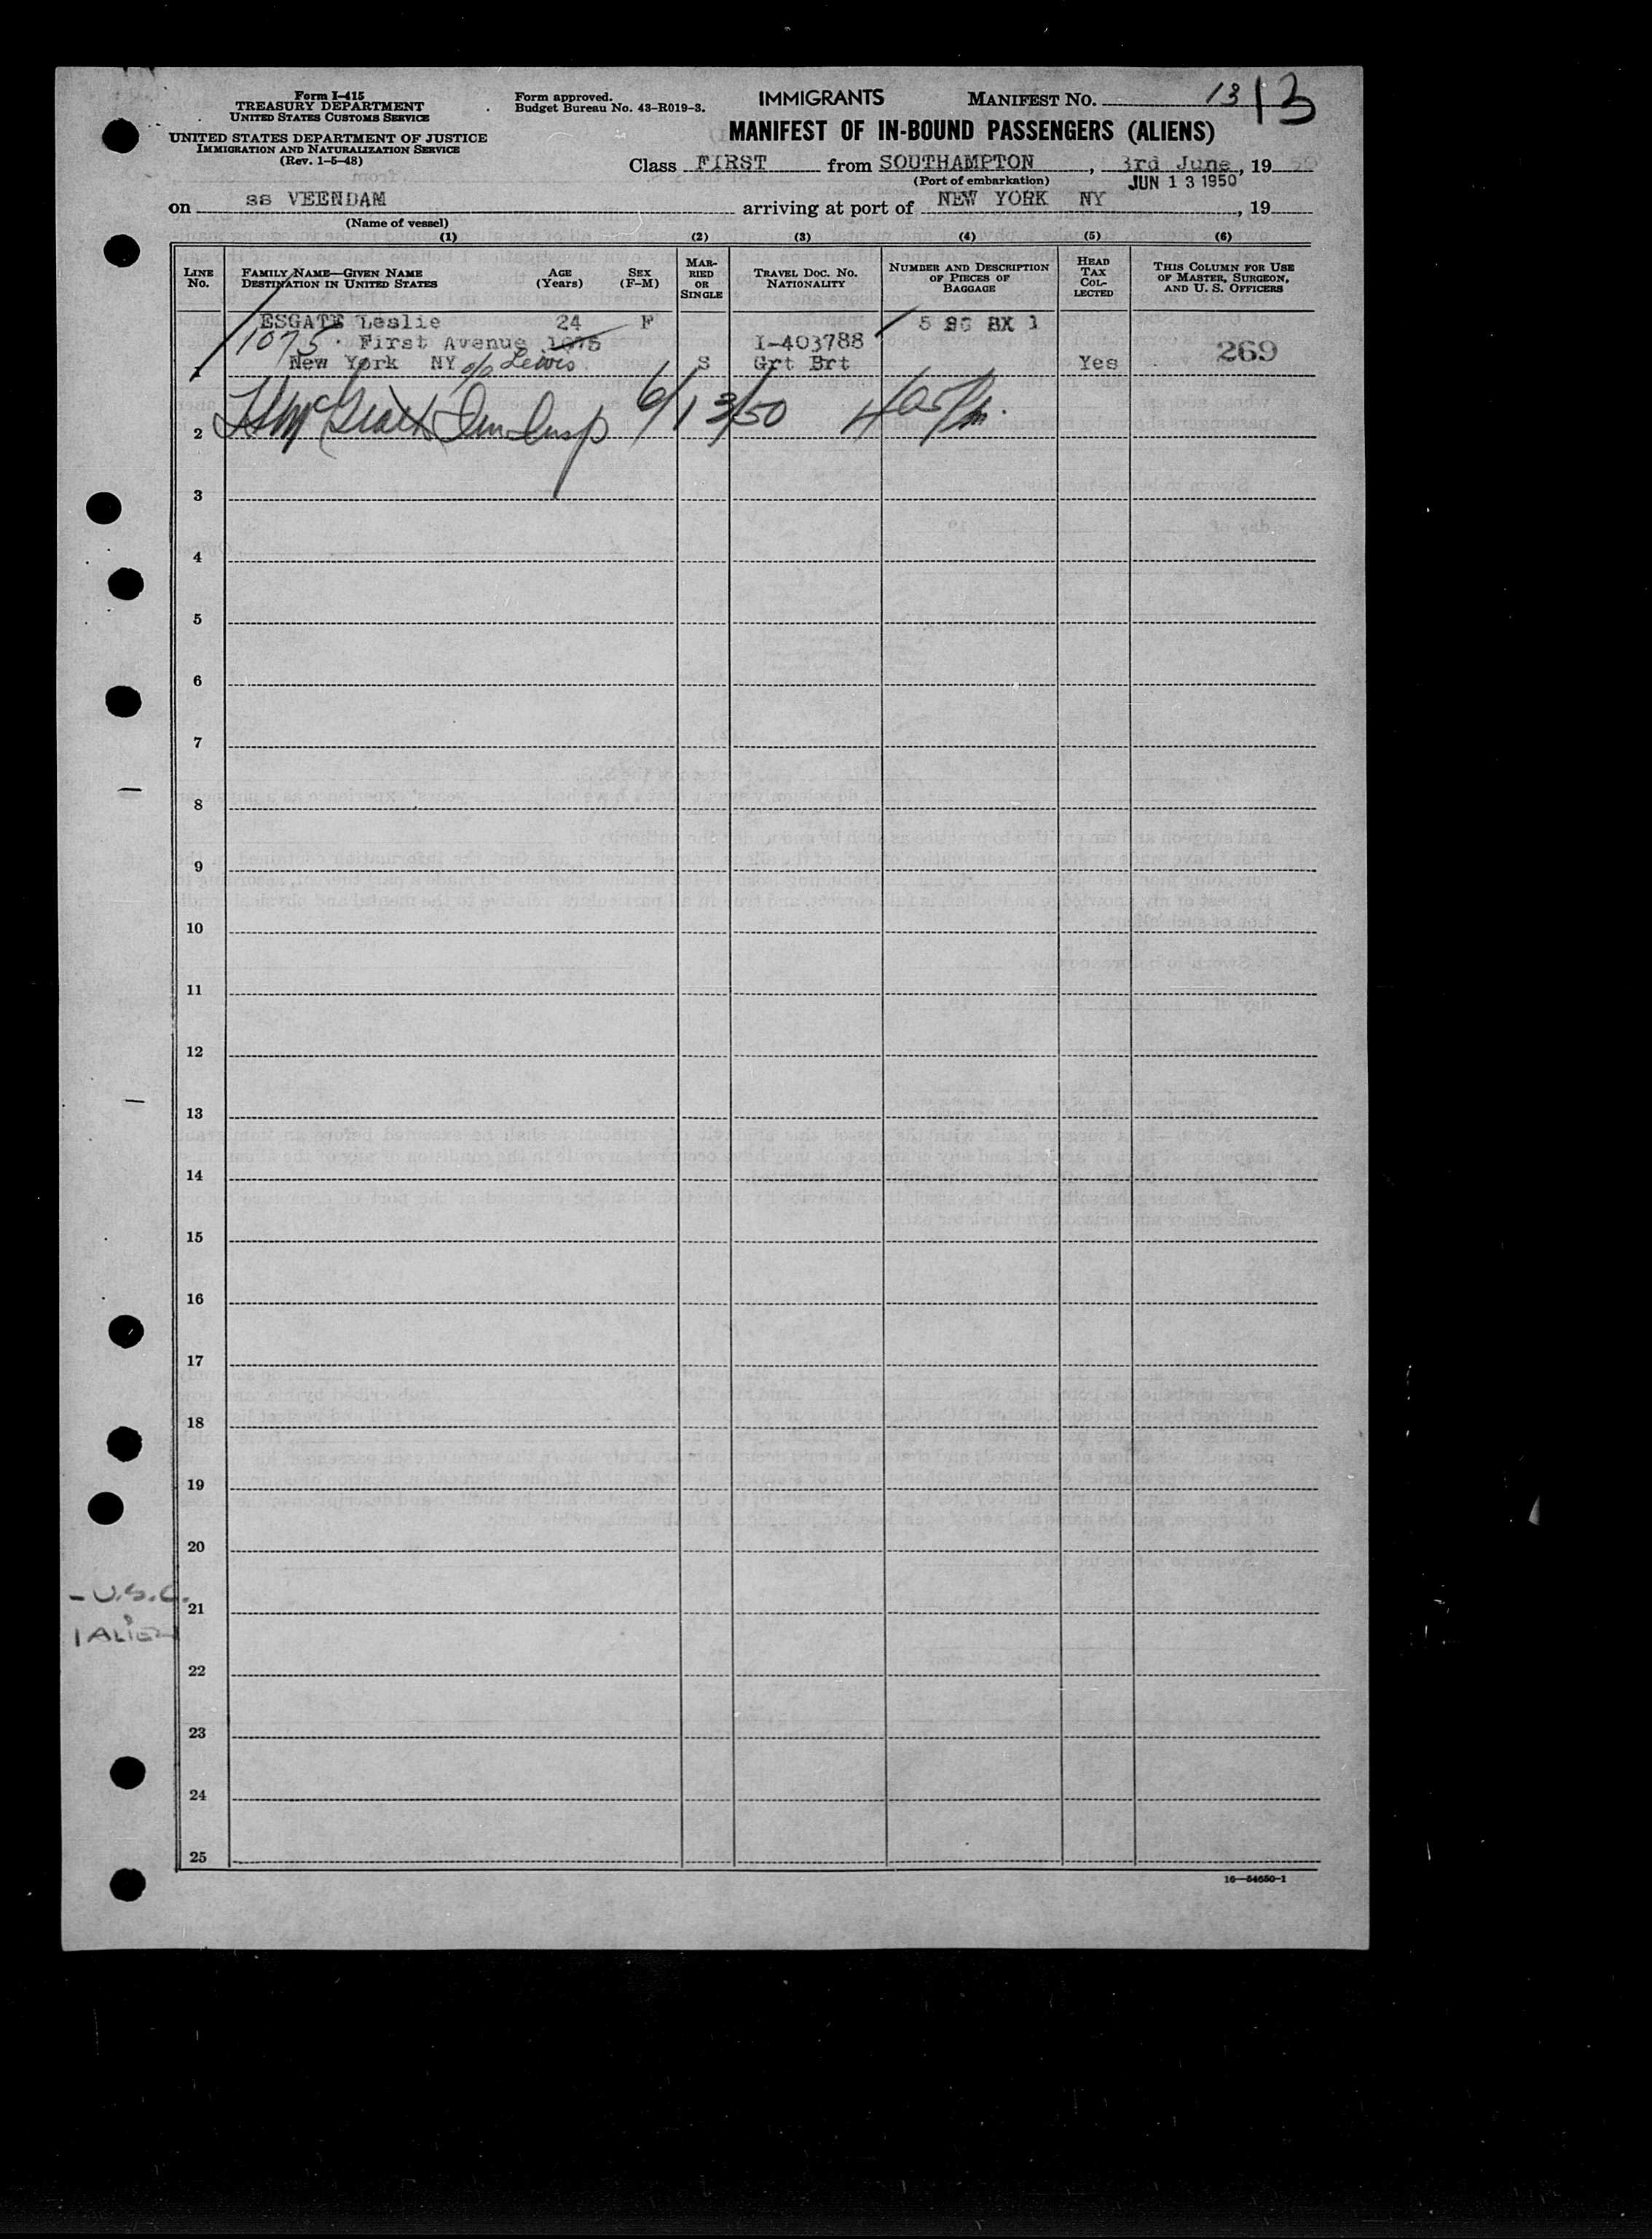 Form I-415
TREASURY DEPARTMENT
UNITED STATES CUSTOMS SERVICE
UNITED STATES DEPARTMENT OF JUSTICE
IMMIGRATION AND NATURALIZATION SERVICE
(Rev. 1-5-48)
Form approved.
Budget Bureau No. 43-R019-3.
IMMIGRANTS
MANIFEST NO. 13 13
MANIFEST OF IN-BOUND PASSENGERS (ALIENS)
Class FIRST from SOUTHAMPTON, 3rd June, 19 50
(Port of embarkation)
JUN 13 1950
on ss VEENDAM arriving at port of NEW YORK NY, 19
(Name of vessel)
(1) (2) (3) (4) (5) (6)
LINE No.
FAMILY NAME—GIVEN NAME
DESTINATION IN UNITED STATES
AGE (Years)
SEX (F-M)
MARRIED OR SINGLE
TRAVEL DOC. NO.
NATIONALITY
NUMBER AND DESCRIPTION OF PIECES OF BAGGAGE
HEAD TAX COLLECTED
THIS COLUMN FOR USE OF MASTER, SURGEON, AND U. S. OFFICERS
ESGATE Leslie 24 F 5 BG BX 1
1075 First Avenue 1075 I-403788
1 New York NY c/o Lewis S Grt Brt Yes 269
2 McGrath Imm Insp 6/13/50
3
4
5
6
7
8
9
10
11
12
13
14
15
16
17
18
19
20
- U.S.C.
21
1 ALIEN
22
23
24
25
16—54650-1